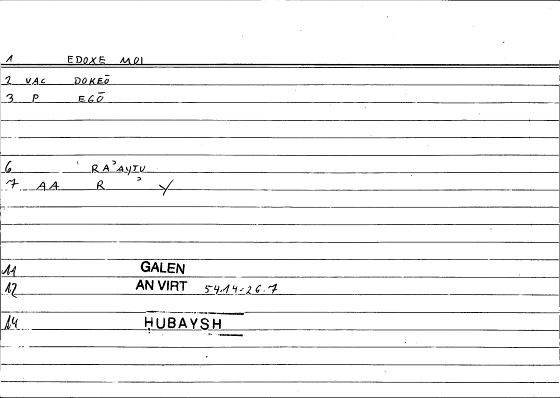 1 EDOXE MOI
2 VAC DOKEŌ
3 P EGŌ
6 ʿ RAʾAYTU
7 AA R ʾ Y
11 GALEN
12 AN VIRT 54.14-26.7
14 ḤUBAYSH